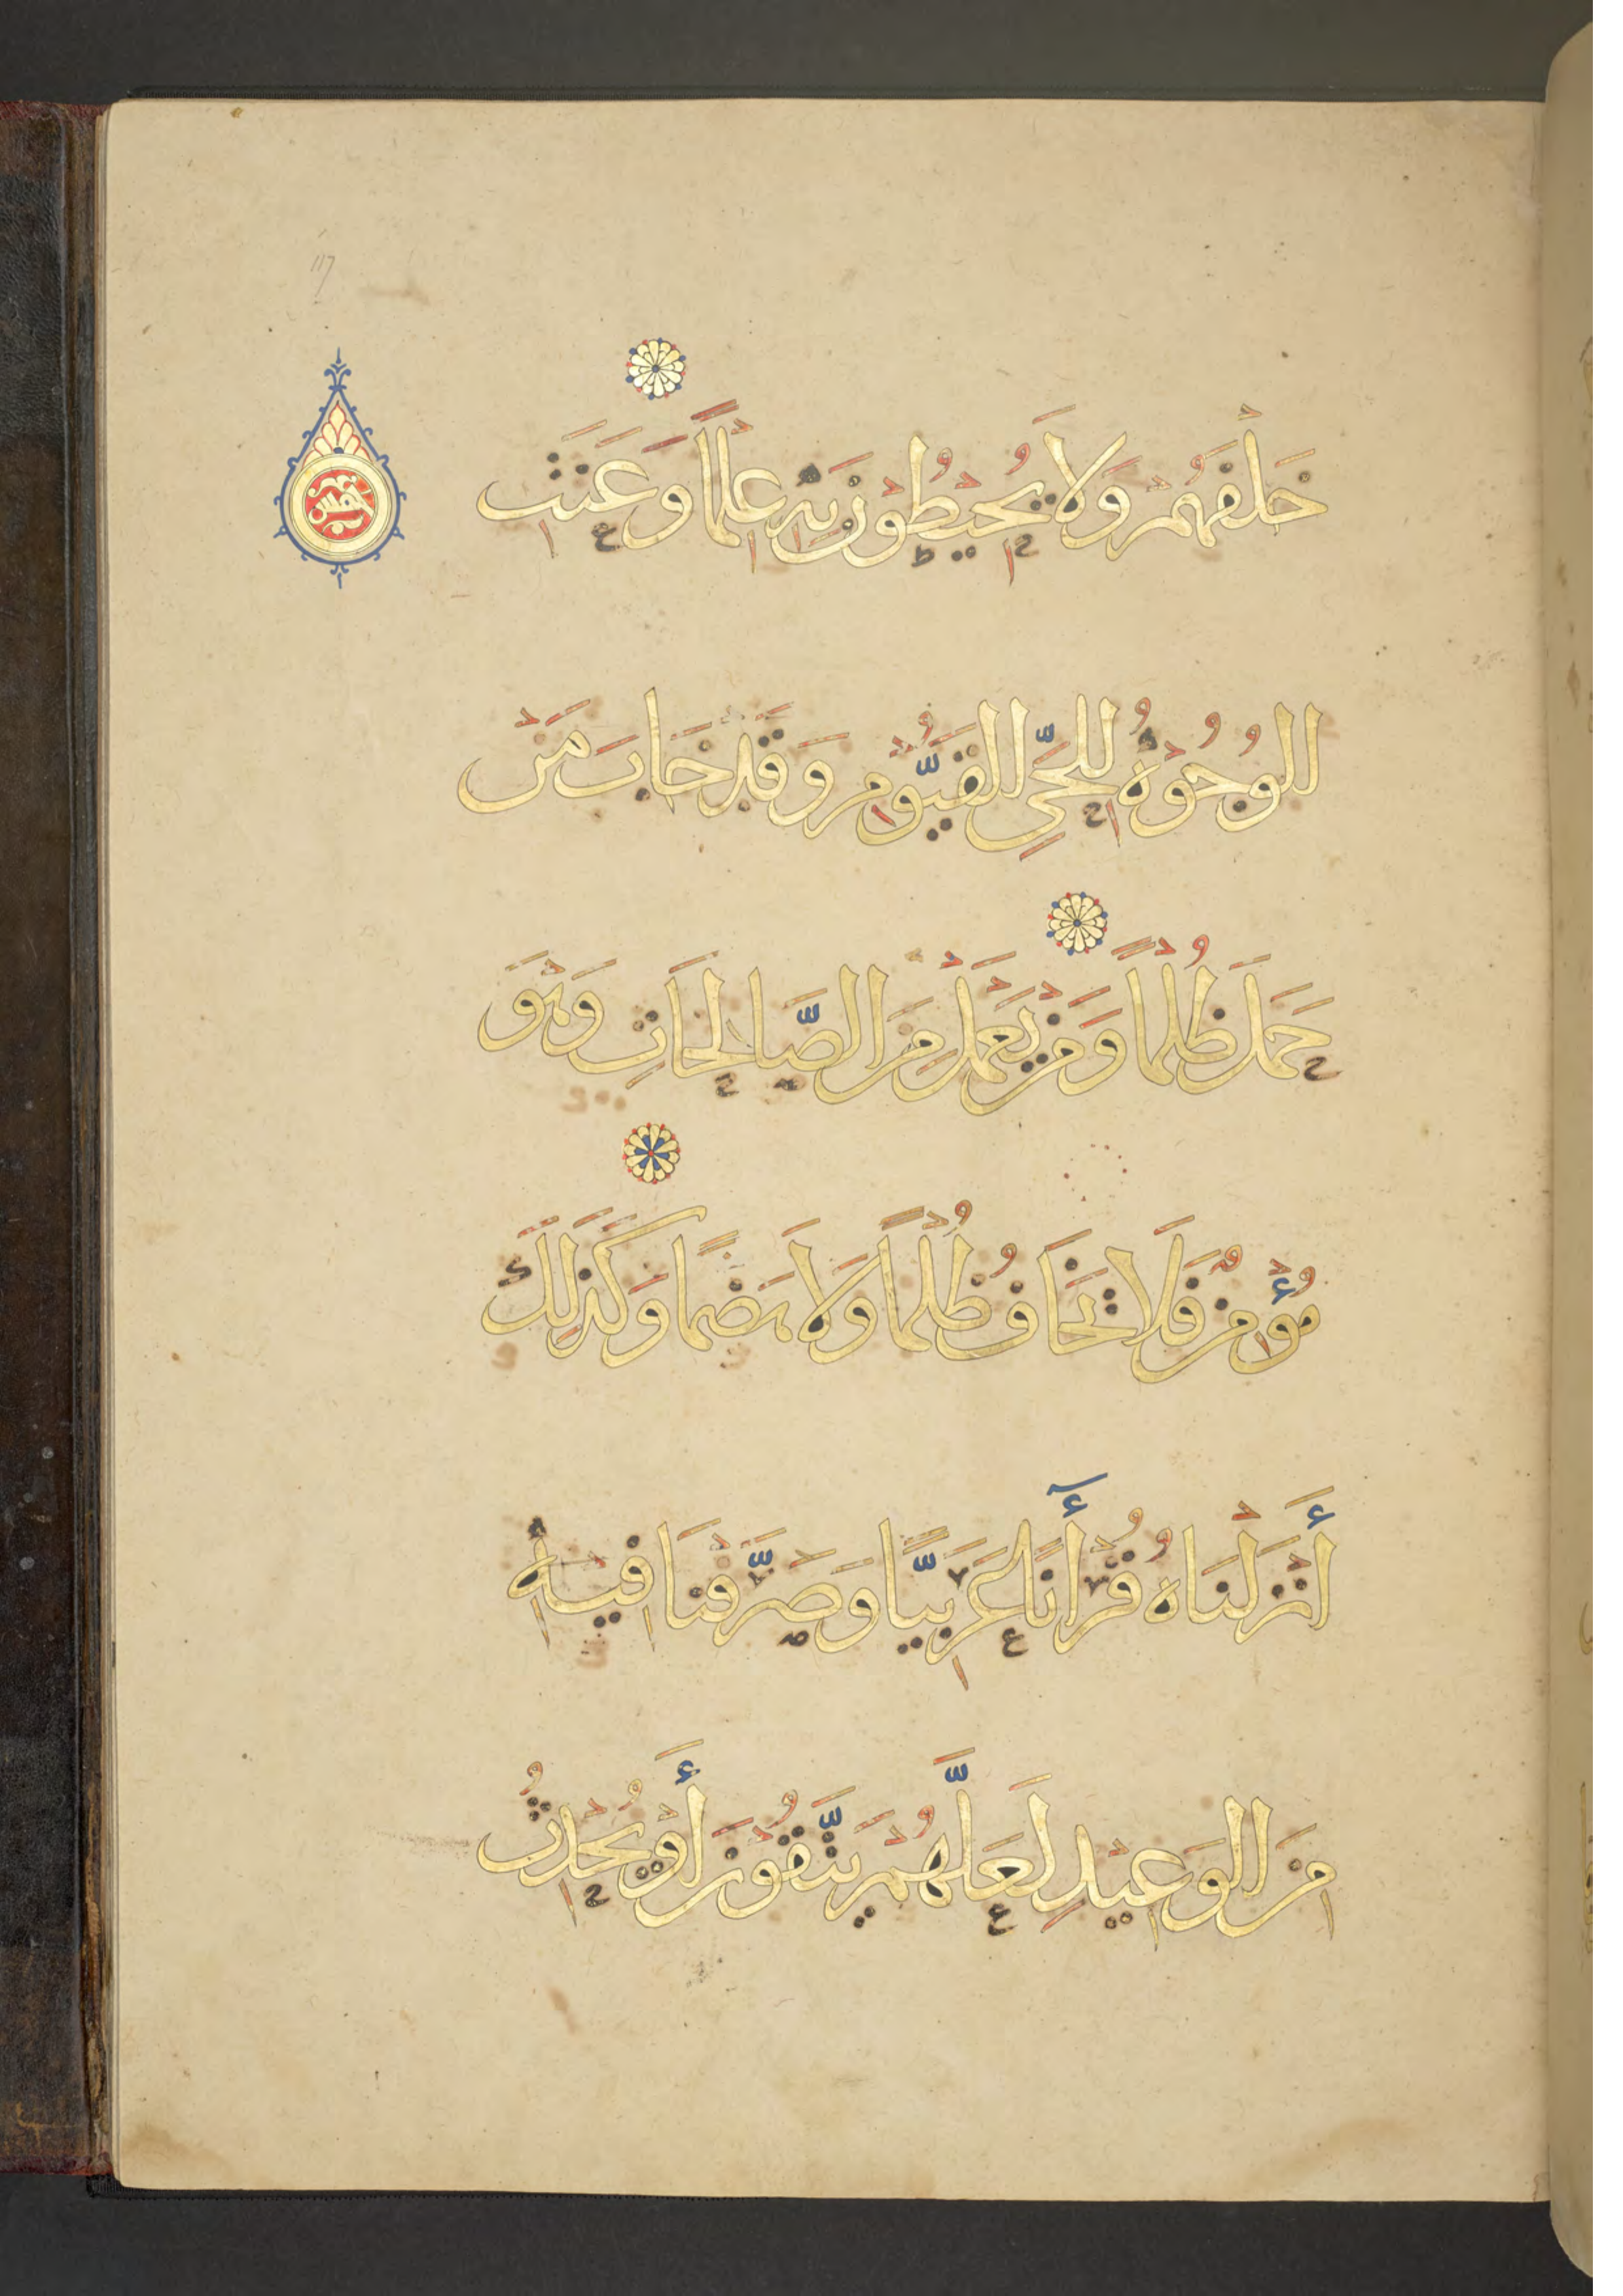 117
خمس
خَلْفَهُمْ وَلَا يُحِيْطُوْنَ بِهِ عِلْمًا وَعَنَتِ
الوُجُوْهُ لِلْحَيِّ القَيُّوْمِ وَقَدْ خَابَ مَنْ
حَمَلَ ظُلْمًا وَمَنْ يَعْمَلْ مِنَ الصَّالِحَاتِ وَهْوَ
مُؤْمِنٌ فَلَا تَخَافُ ظُلْمًا وَلَا هَضْمًا وَكَذٰلِكَ
أَنْزَلْنَاهُ قُرْأٰنًا عَرَبِيًّا وَصَرَّفْنَا فِيْهِ
مِنَ الوَعِيْدِ لَعَلَّهُمْ يَتَّقُوْنَ أَوْ يُحْدِثُ